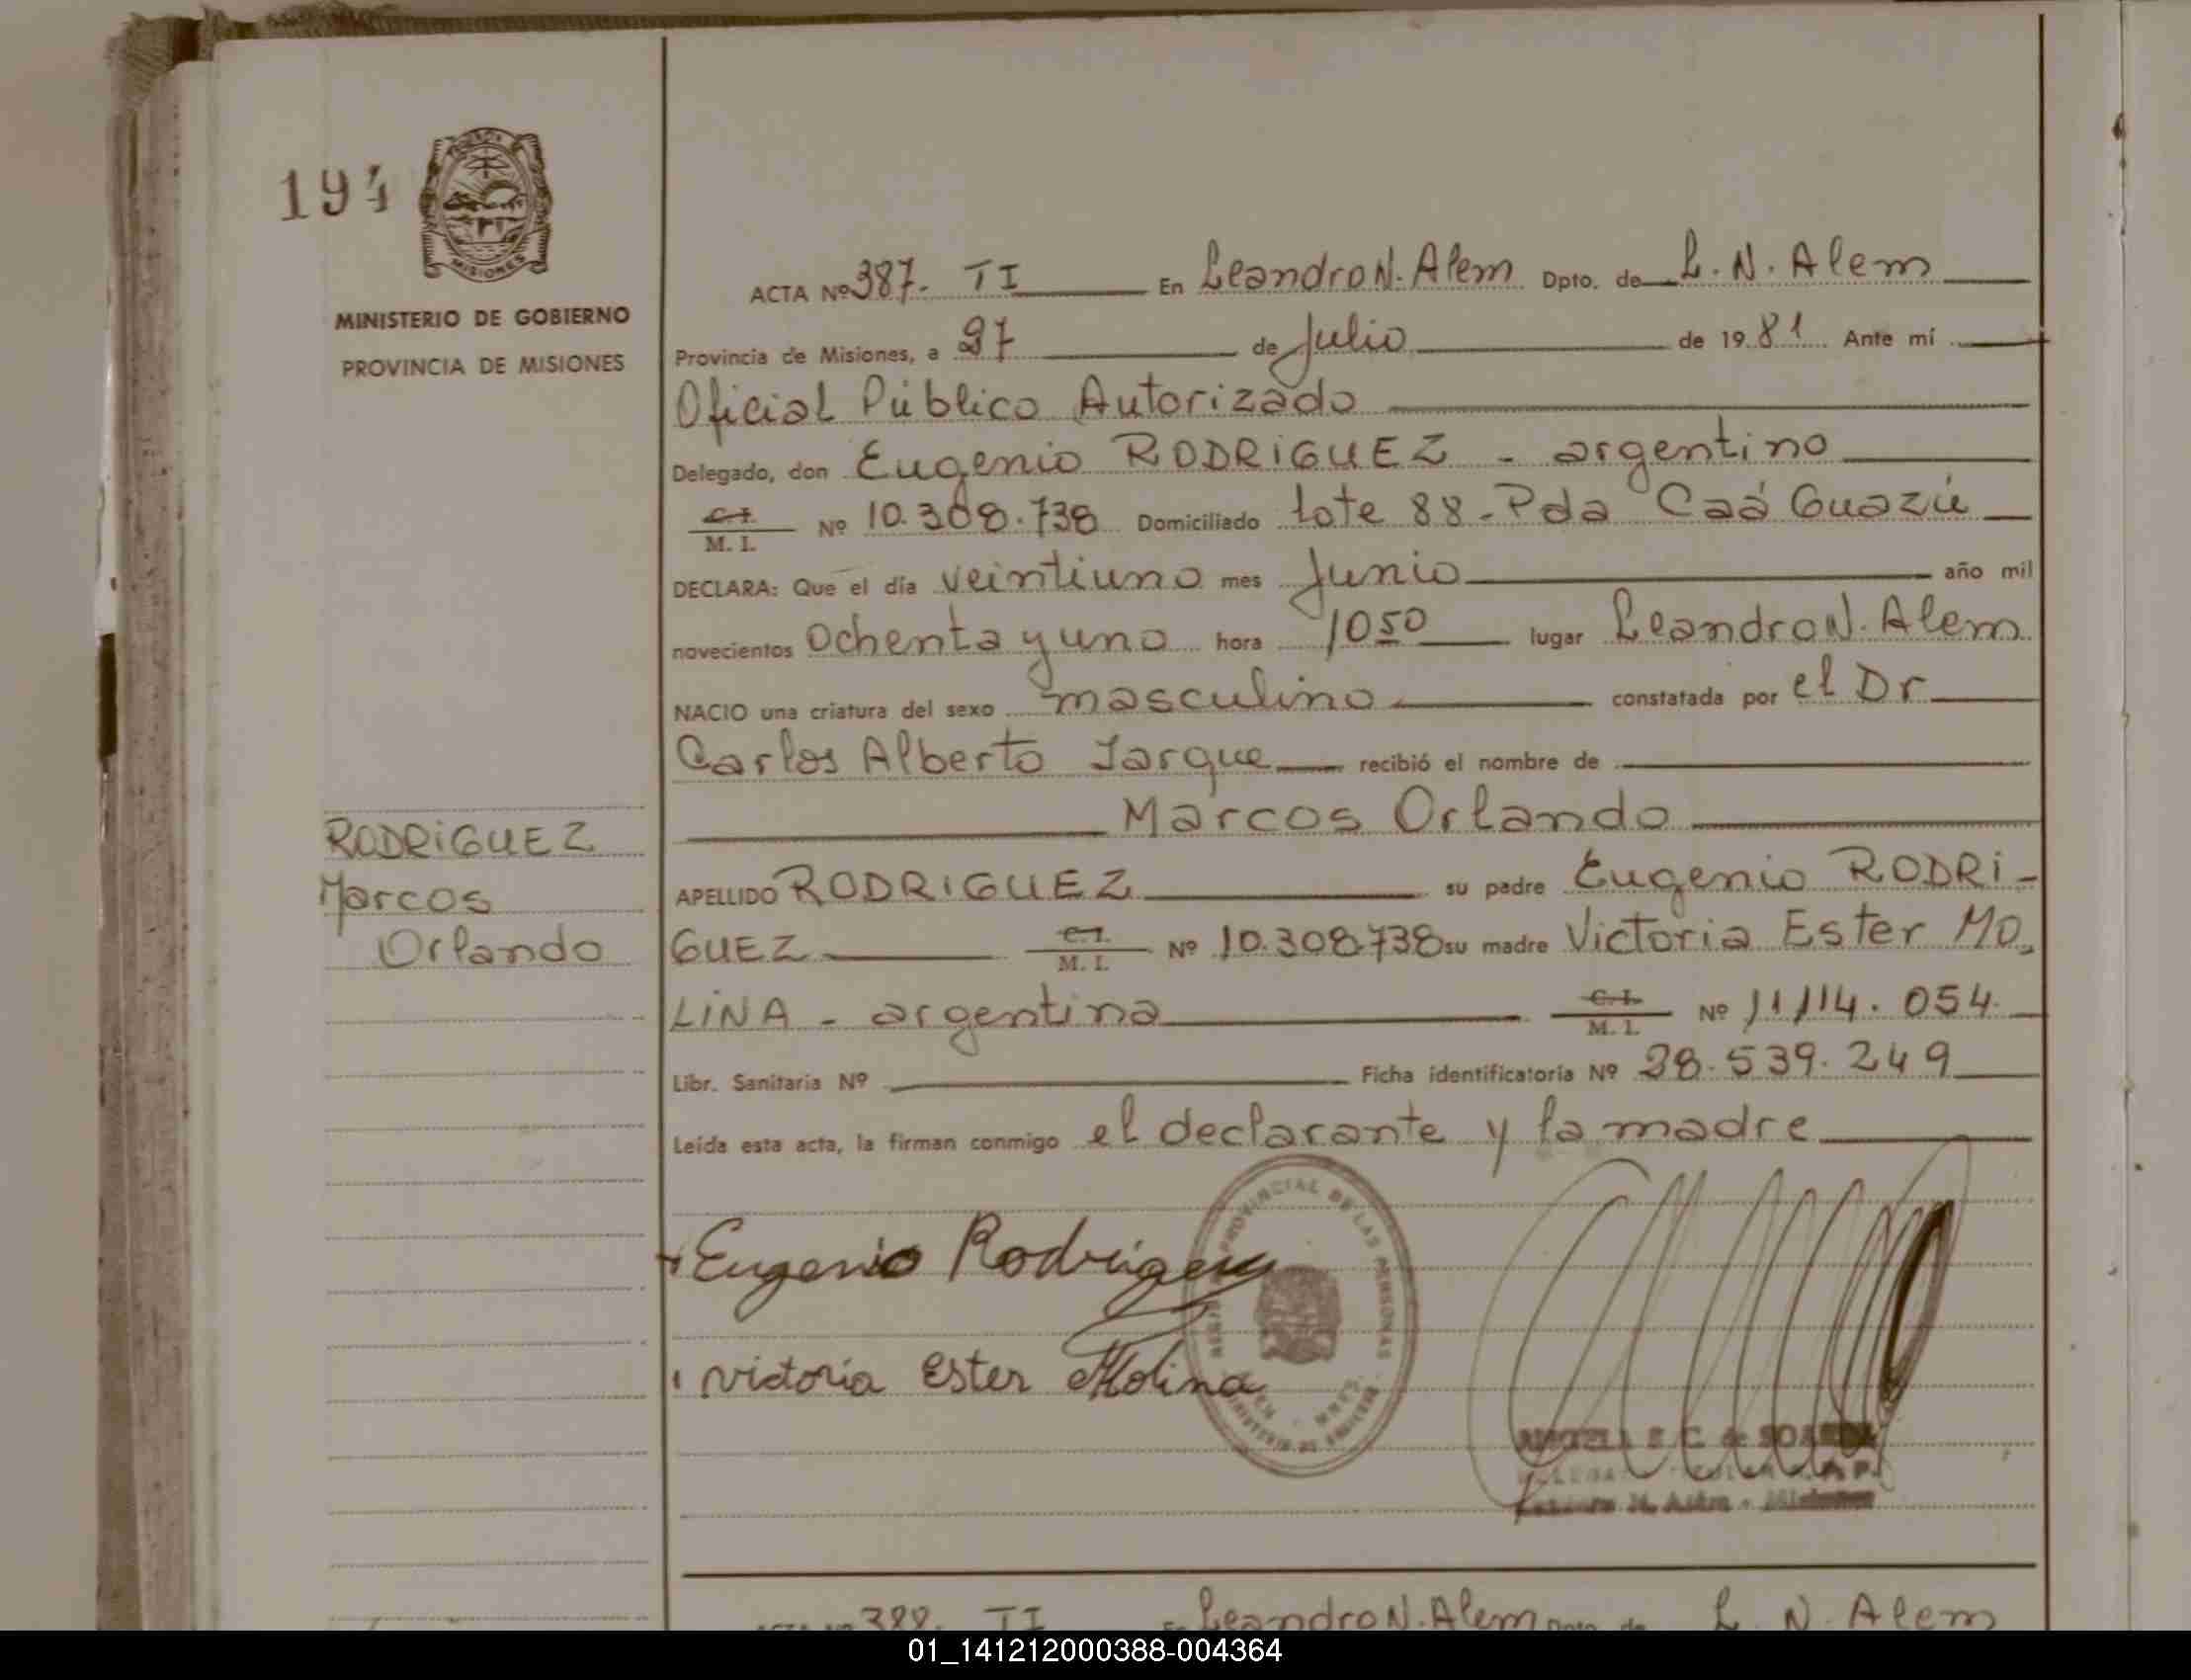 194
MISIONES
MINISTERIO DE GOBIERNO
PROVINCIA DE MISIONES
RODRIGUEZ
Marcos
Orlando
ACTA Nº 387. TI En Leandro N. Alem Dpto. de L. N. Alem
Provincia de Misiones, a 27 de Julio de 1981 Ante mí
Oficial Público Autorizado
Delegado, don Eugenio RODRIGUEZ - argentino
C.I. M. I. Nº 10.308.738 Domiciliado Lote 88 - Pda Caá Guazú
DECLARA: Que el día veintiuno mes Junio año mil
novecientos Ochenta y uno hora 10 50 lugar Leandro N. Alem
NACIO una criatura del sexo masculino constatada por el Dr
Carlos Alberto Jarque recibió el nombre de
Marcos Orlando
APELLIDO RODRIGUEZ su padre Eugenio RODRI-
GUEZ C.I. M. I. Nº 10.308.738 su madre Victoria Ester MO-
LINA - argentina C.I. M. I. Nº 11114.054.
Libr. Sanitaria Nº Ficha identificatoria Nº 28.539.249
Leída esta acta, la firman conmigo el declarante y la madre
PROVINCIAL DE LAS PERSONAS
Eugenio Rodriguez
Victoria Ester Molina
ACTA Nº 388. TI En Leandro N. Alem Dpto. de L. N. Alem
01_141212000388-004364